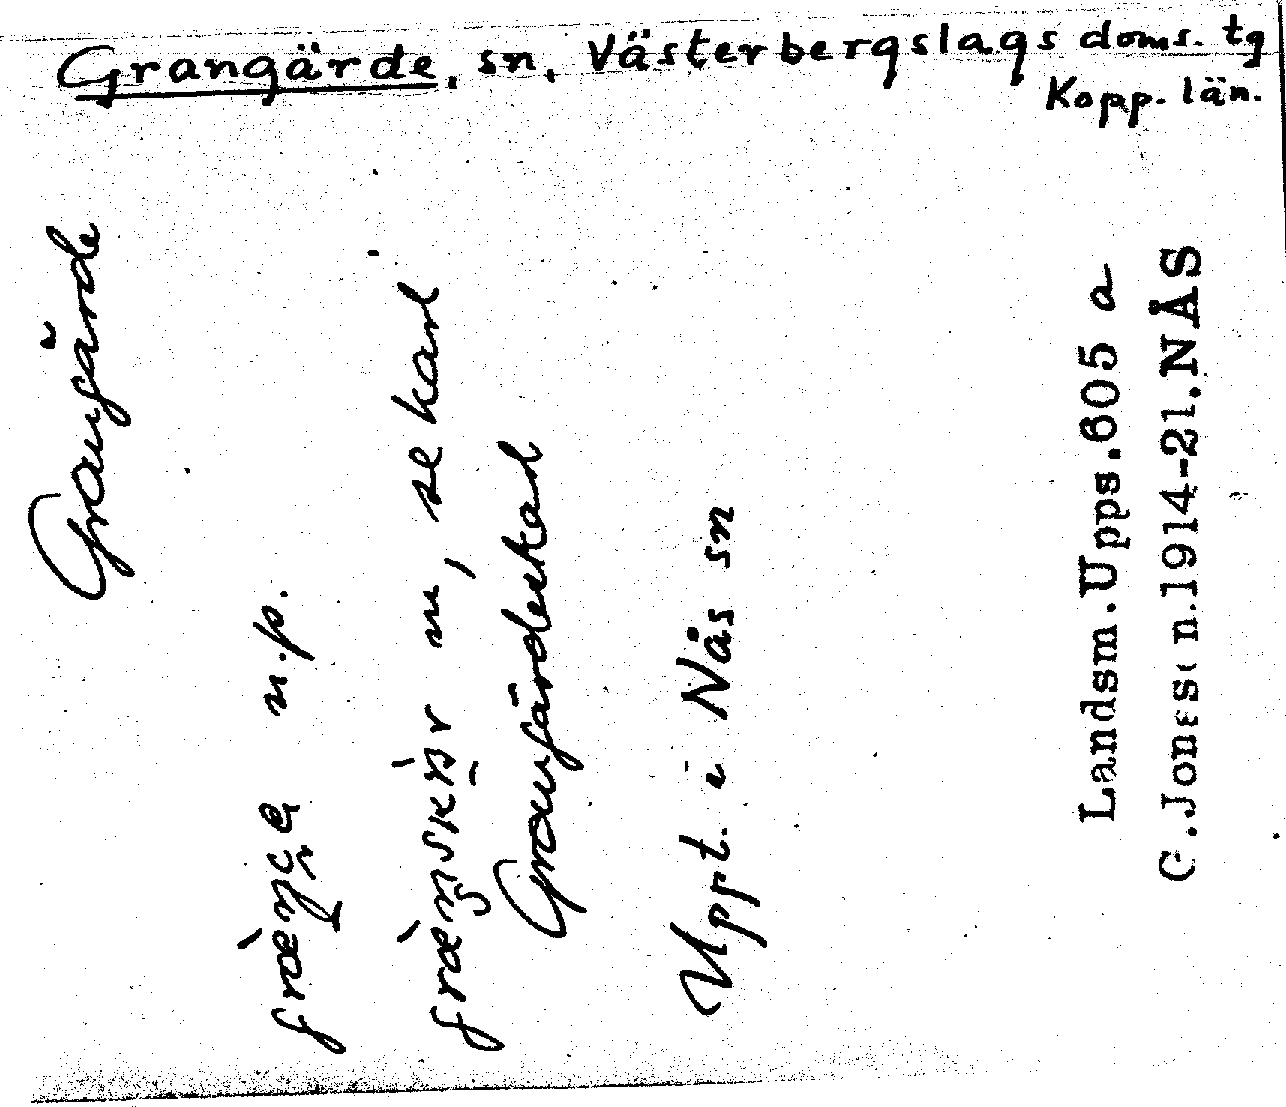 Grangärde, sn, Västerbergslags doms. tg
Kopp. län.
Grangärde
n.p.
m, se karl
Grangärdeskarl
Uppt. i Nås sn
Landsm.Upps.605 a
G.Jonsson.1914-21.NÅS